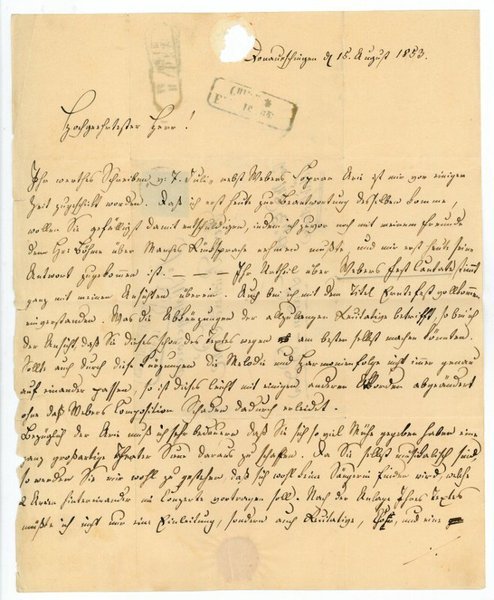 Donaueschingen d 15. August 1853.
Hochgeehrtester Herr!
Ihr werthes Schreiben v. 7. Juli, nebst Webers Sopran Arie ist mir vor einigen
Zeit zugeschickt worden. Daß ich erst heute zur Beantwortung desselben komme,
wollen Sie gefälligst damit entschuldigen, indem ich zuvor noch mit meinem Freunde
dem Hr. Böhm über Manches Rücksprache nehmen mußte und mir erst heute seine
Antwort zugekommen ist. — — — Ihr Urtheil über Webers Fest Cantate stimmt
ganz mit meinen Ansichten überein. Auch bin ich mit dem Titel Erntefest vollkommen
einverstanden. Was die Abkürzungen der allzulangen Recitative betrifft, so bin ich
der Ansicht daß Sie dieses schon des Textes wegen am besten selbst machen könnten.
Sollte auch durch diese Kürzungen die Melodie und Harmonienfolge nicht immer genau
auf einander passen, so ist dieses leicht mit einigen anderen Akkorden abgeändert
ohne daß Webers Composition Schaden dadurch erleidet.
Bezüglich der Arie muß ich sehr bedauern daß Sie sich so viel Mühe gegeben haben eine
ganz großartige Theater Scene daraus zu schaffen. Da Sie selbst musikalisch sind
so werden Sie mir wohl zu gestehen daß sich wohl keine Sängerin finden wird, welche
2 Arien hintereinander im Conzerte vortragen soll. Nach der Anlage Ihres Textes
müßte ich nicht nur eine Einleitung, sondern auch Recitative, und eine